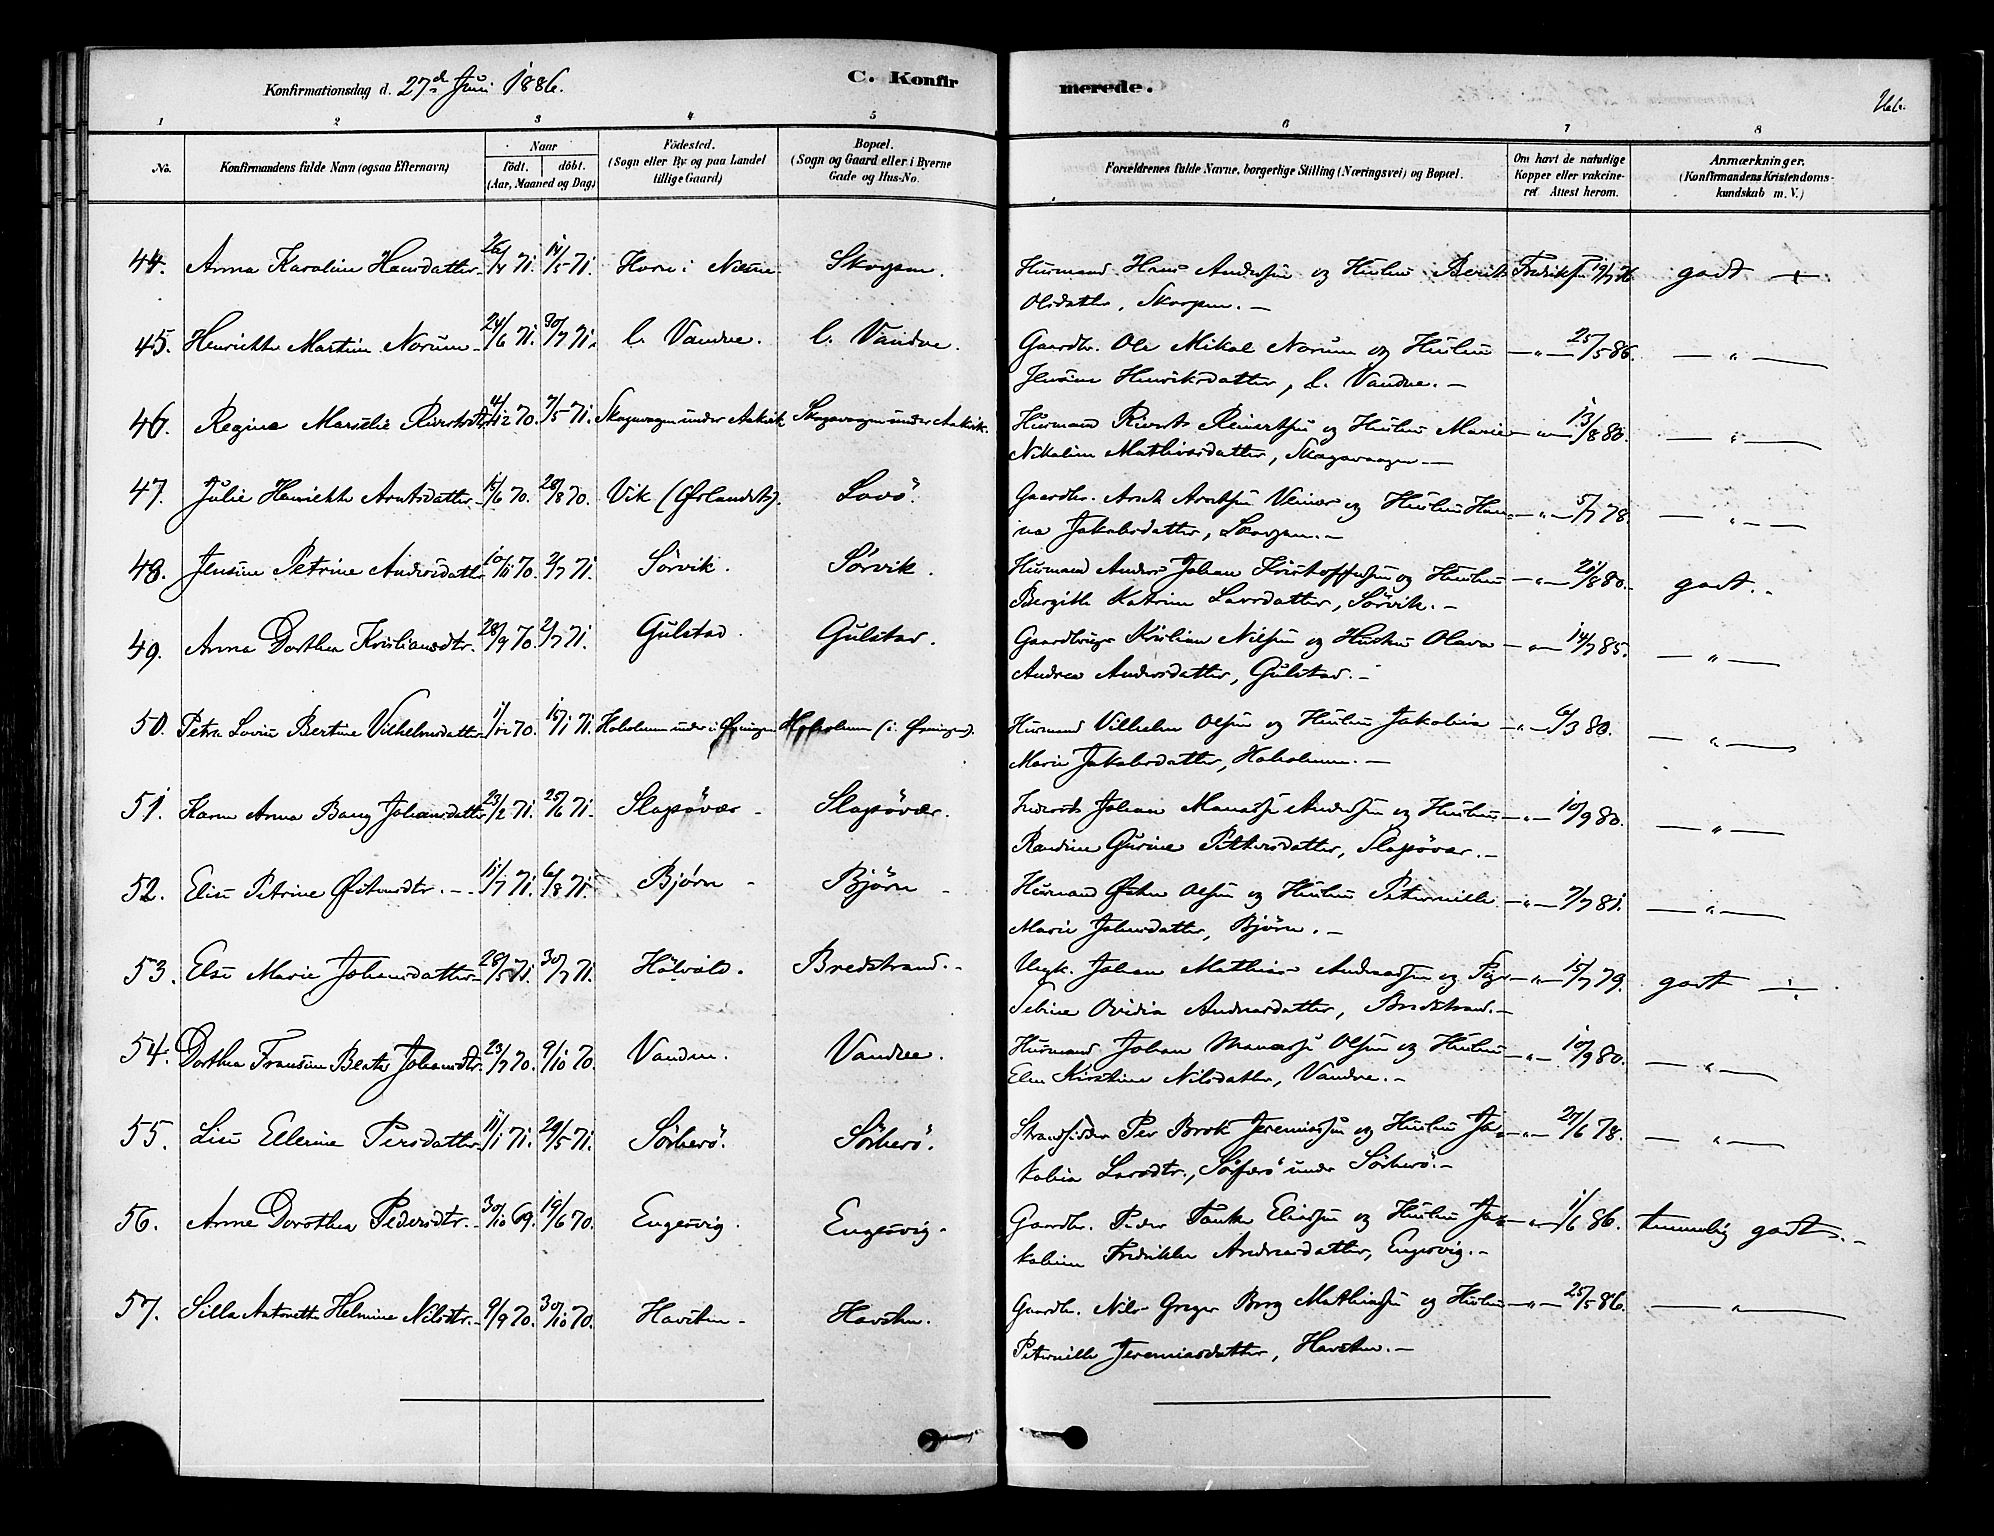 Konfirmationsdag d. 27d Juni 1886.
C. Konfir
merede.
1 2 3 4 5 6 7 8
No.
Konfirmandens fulde Navn (ogsaa Efternavn)
Naar
födt. döbt.
(Aar, Maaned og Dag)
Födested.
(Sogn eller By og paa Landet
tillige Gaard)
Bopæl.
(Sogn og Gaard eller i Byerne
Gade og Hus-No.
Forældrenes fulde Navne, borgerlige Stilling (Næringsvei) og Bopæl.
Om havt de naturlige
Kopper eller vakcine-
ret Attest herom.
Anmærkninger.
(Konfirmandens Kristendoms-
kundskab m. V.)
44. Anna Karoline Hansdatter 26/4 71. 14/5 71. Horn i Skogsøen. Husmand Hans Andersen og Hustru Berit 19/7 76 godt +
Olsdatter,
45. Henriette Martine Norum 24/6 71. 30/7 71. l. Vandve. l. Vandve. Gaardbr. Ole Mikal Norum og Hustru —„— 25/5 86. — „ —
Jensine Henriksdatter, l. Vandve. —
46. Regina Marselie 4/12 70. 7/5 71. Skagavaagen under Aakvik Skagavaagen under Aakvik. Husmand Reinertsen og Hustru Marie —„— 13/8 80. — „ —
Nikoline Mathiasdatter, Skagavaagen —
47. Julie Henriette Arntsdatter 15/6 70. 28/8 70. Vik (Ørlandet). Lovö. Gaardbr. Arnt Arntsen og Hustru Han- —„— 5/7 78. — „ —
na Jakobsdatter,
48. Jensine Petrine Andersdatter 10/11 70. 2/7 71. Sörvik. Sörvik. Husmand Anders Johan Kristoffersen og Hustru —„— 21/8 80. godt.
Bergitte Katrine Larsdatter, Sörvik. —
49. Anna Dorthea Kristiansdtr. 28/9 70. 2/7 71. Gulstad. Gulstad. Gaardbruger Kristian Nilsen og Hustru Olava —„— 14/7 85. — „ —
Andrea Andersdatter, Gulstad. —
50. Petra Lovise Bertine Vilhelmsdatter 1/12 70. 15/1 71. Holsholmen under i Øxningen Holsholmen (i Øxningen). Husmand Vilhelm Olsen og Hustru Jakobia —„— 6/3 80. — „ —
Marie Jakobsdatter, Holsholmen. —
51. Karen Anna Bang Johansdatter 23/2 71. 25/6 71. Slapövær Slapövær. Johan Manasse Andersen og Hustru —„— 10/9 80. — „ —
Randine Gurine Pettersdatter, Slapövær. —
52. Elise Petrine Østensdtr. 11/7 71. 6/8 71. Bjørn Bjørn Husmand Østen Olsen og Hustru Peternille —„— 7/7 81. — „ —
Marie Johnsdatter, Bjørn. —
53. Else Marie Johansdatter 28/5 71. 30/7 71. Bredstrand. Ungk. Johan Mathias Andreassen og Pige —„— 15/7 79. godt ÷
Sebine Ovidia Andreasdatter, Bredstrand. —
54. Dorthea Fransine Beate Johansdtr. 23/7 70. 9/10 70. Vandve. Vandve. Husmand Johan Manasse Olsen og Hustru —„— 10/9 80. — „ —
Elen Kirstine Nilsdatter, Vandve. —
55. Lise Ellerine Persdatter 11/1 71. 29/5 71. Sörherö. Sörherö. Strandsidder Per Brok Jeremiassen og Hustru Ja- —„— 27/6 78. — „ —
kobia Larsdtr., under Sörherö. —
56. Anne Dorothea Pedersdtr. 30/10 69. 19/6 70. Engesvig. Engesvig. Gaardbr. Peder Tank Eliassen og Hustru Ja- —„— 1/6 86. temmelig godt. —
kobine Fredrikke Andreasdatter, Engesvig. —
57. Silla Antonette Helmine Nilsdtr. 9/9 70. 30/10 70. Havsten. Havsten. Gaardbr. Nils Greger Borg Mathiassen og Hustru —„— 25/5 86. — „ —
Peternille Jeremiasdatter, Havsten. —